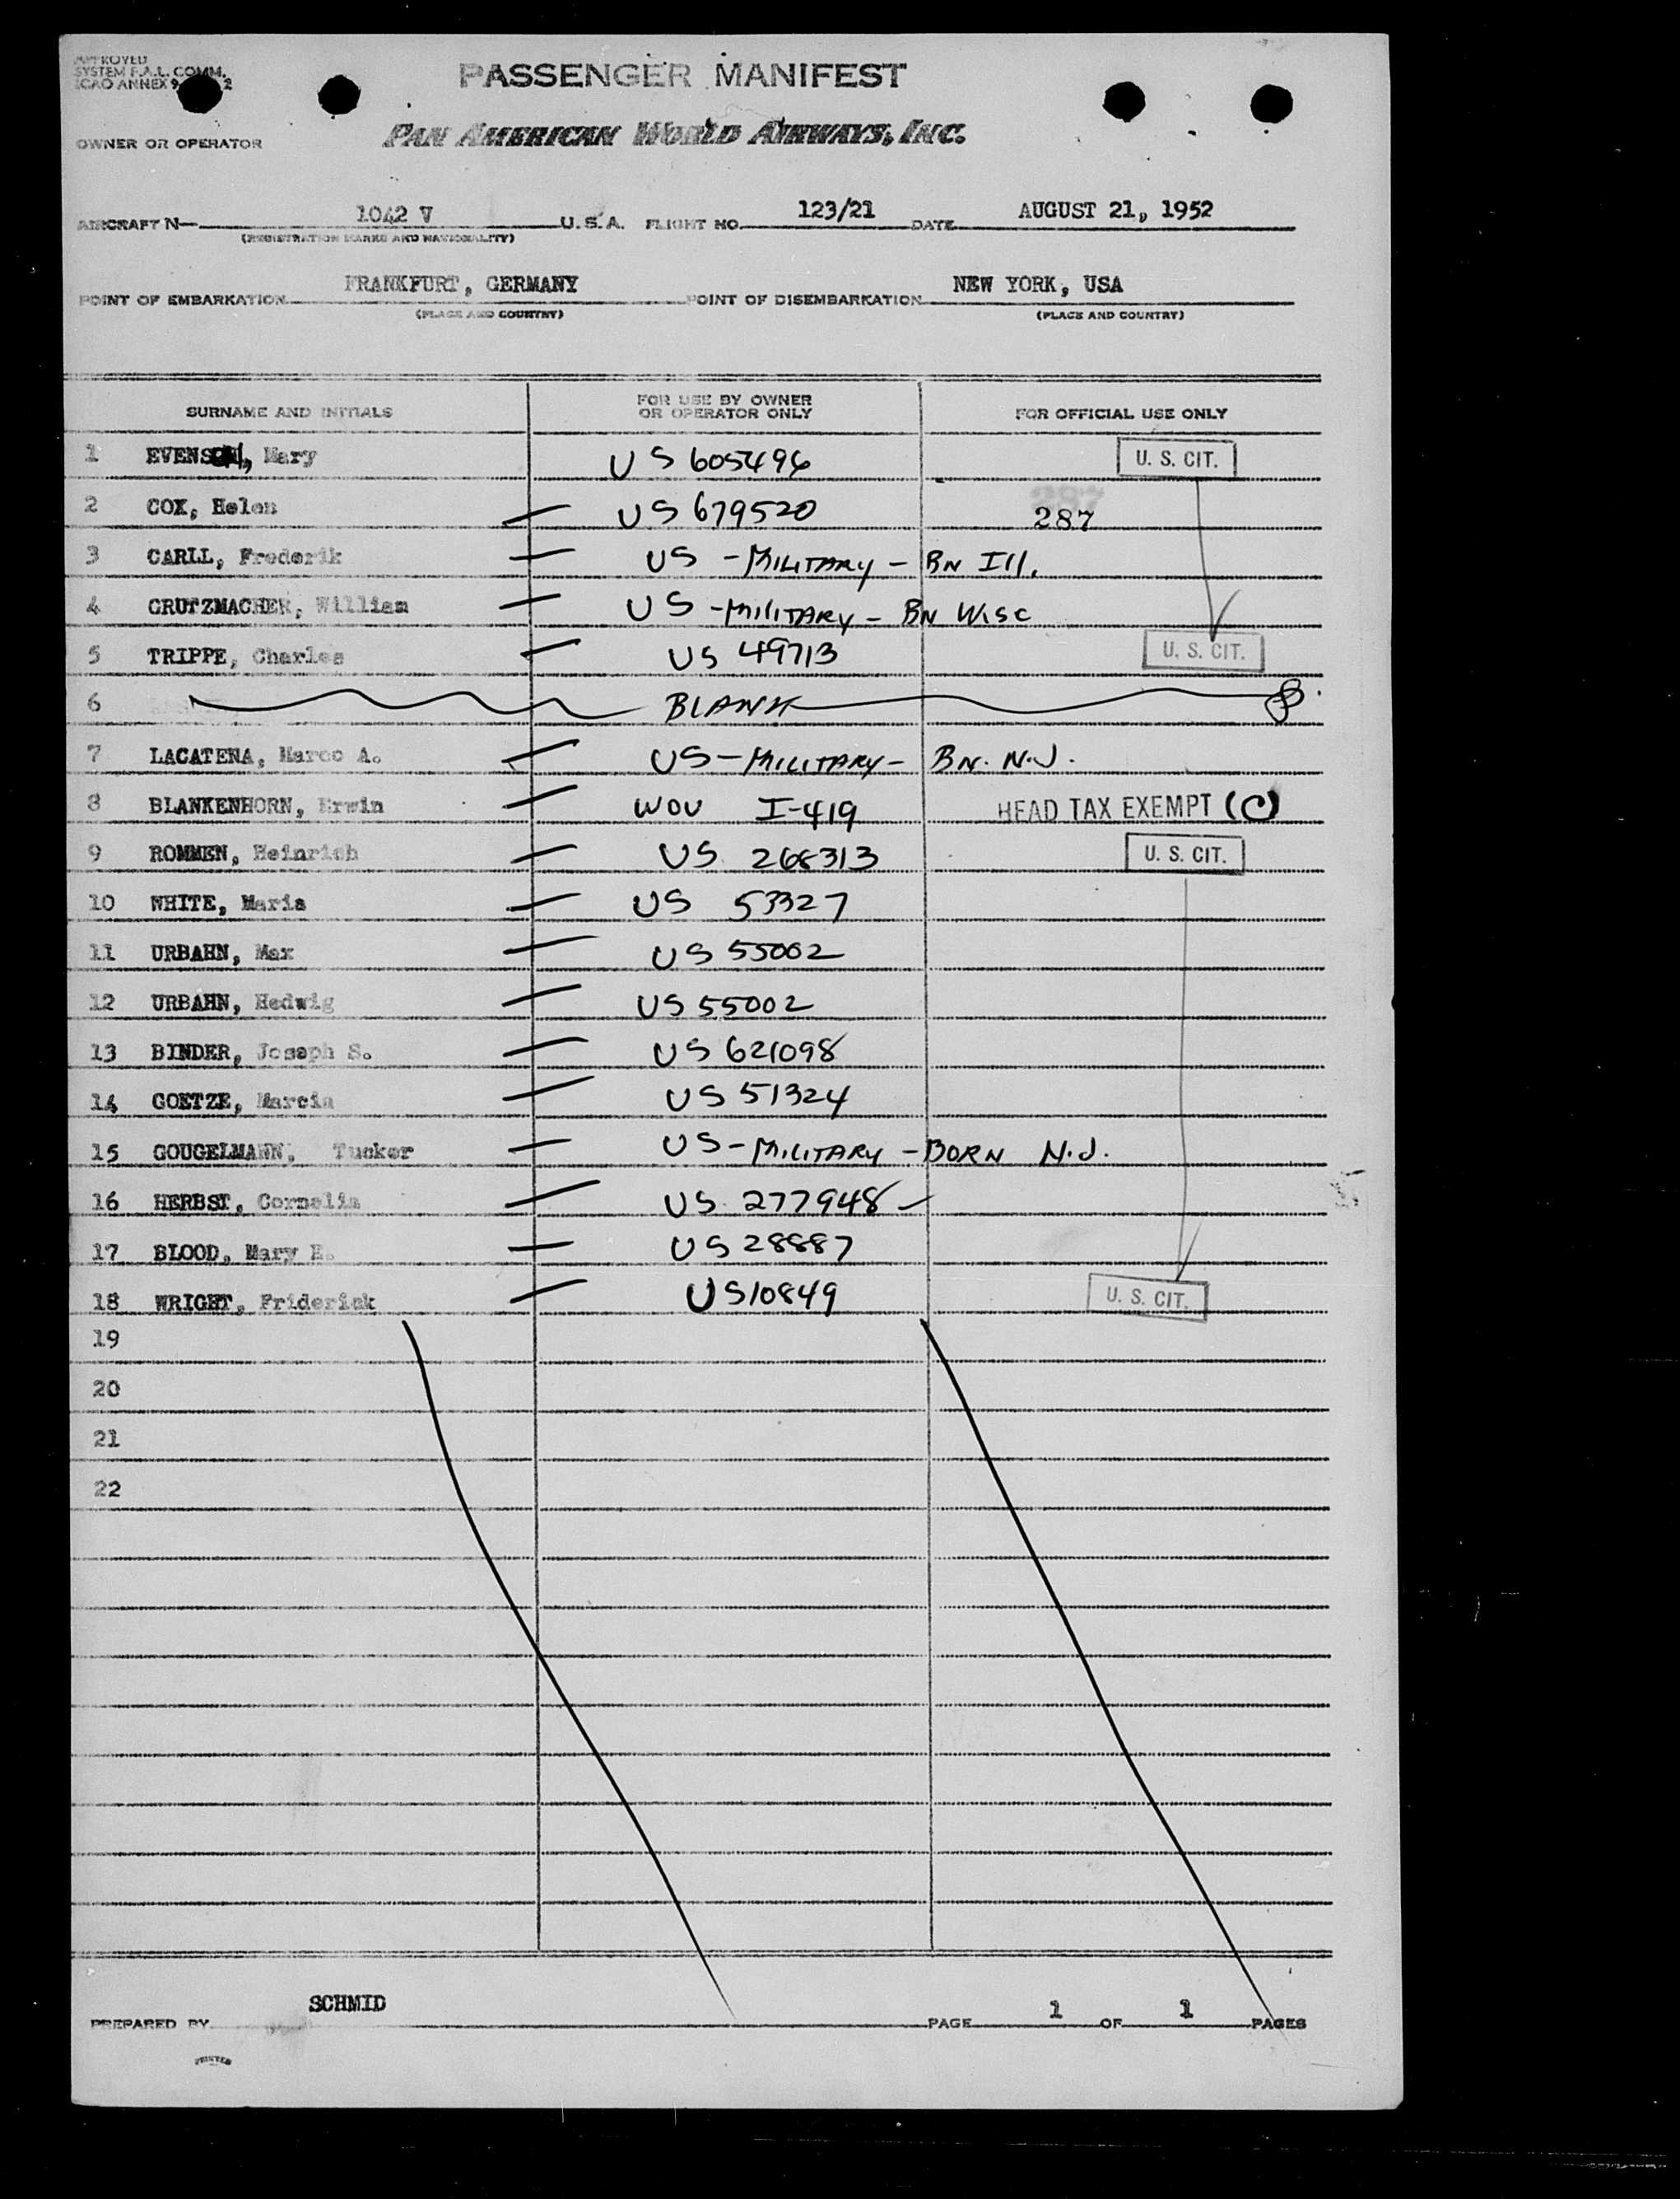 APPROVED
SYSTEM F.A.L. COMM.
ICAO ANNEX 9 2
PASSENGER MANIFEST
OWNER OR OPERATOR PAN AMERICAN WORLD AIRWAYS, INC.
AIRCRAFT N— 1042 V U.S.A. FLIGHT NO. 123/21 DATE AUGUST 21, 1952
(REGISTRATION MARKS AND NATIONALITY)
FRANKFURT, GERMANY NEW YORK, USA
POINT OF EMBARKATION POINT OF DISEMBARKATION
(PLACE AND COUNTRY) (PLACE AND COUNTRY)
SURNAME AND INITIALS FOR USE BY OWNER OR OPERATOR ONLY FOR OFFICIAL USE ONLY
1 EVENSON, Mary US 605496 U. S. CIT.
2 COX, Helen US 679520 287
3 CARLL, Frederik US - MILITARY - BN Ill.
4 GRUTZMACHER, William US - MILITARY - BN Wisc
5 TRIPPE, Charles US 49713 U. S. CIT.
6 BLANK
7 LACATENA, Marco A. US - MILITARY - BN. N.J.
8 BLANKENHORN, Erwin WOV I-419 HEAD TAX EXEMPT (C)
9 ROMMEN, Heinrich US 268313 U. S. CIT.
10 WHITE, Maria US 53327
11 URBAHN, Max US 55002
12 URBAHN, Hedwig US 55002
13 BINDER, Joseph S. US 621098
14 GOETZE, Marcia US 51324
15 GOUGELMANN, Tucker US - MILITARY - BORN N.J.
16 HERBST, Cornelia US 277948
17 BLOOD, Mary E. US 28887
18 WRIGHT, Friderick US 10849 U. S. CIT.
19
20
21
22
SCHMID
PREPARED BY PAGE 1 OF 1 PAGES
PRINTED